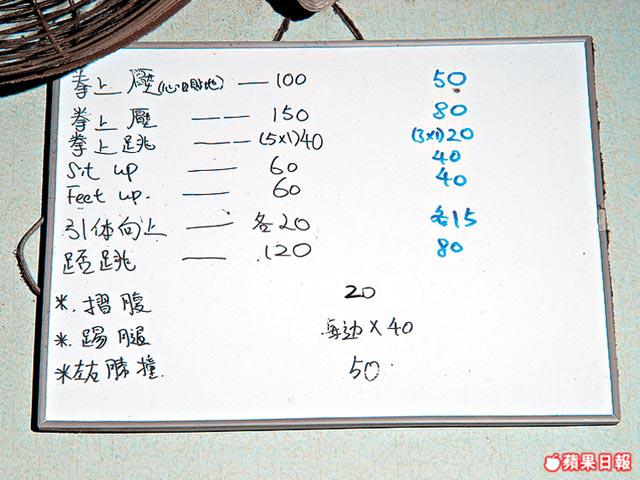 拳上壓(心口貼地) — 100 50
拳上壓 — — 150 80
拳上跳 — — (5×1)40 (3×1)20
Sit up — 60 40
Feet up. — 60 40
引体向上 — 各20 各15
跳 — 120 80
*. 摺腹 20
*. 踢腿 每边×40
*左右膝撞. 50
蘋果日報